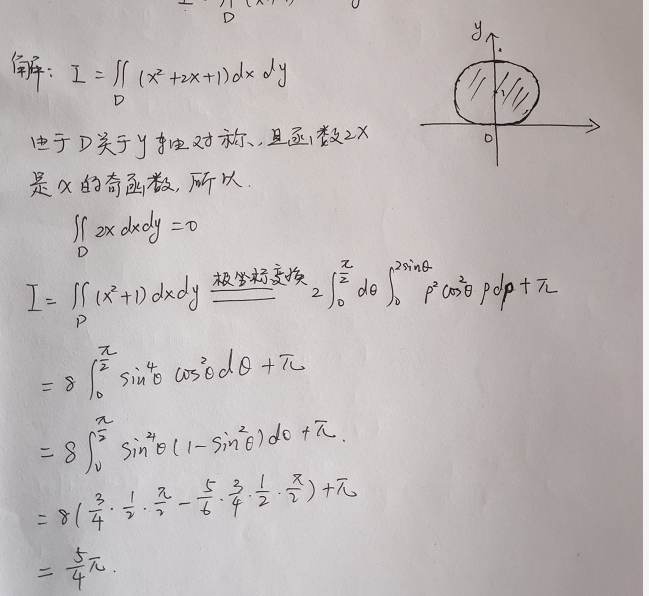 D
y
解: I = ∬_D (x²+2x+1) dx dy
0
由于D关于y轴对称, 且函数2x
是x的奇函数, 所以.
∬_D 2x dx dy = 0
I = ∬_D (x²+1) dx dy 极坐标变换 2∫_0^{π/2} dθ ∫_0^{2sinθ} ρ² cos²θ ρ dρ + π
= 8 ∫_0^{π/2} sin⁴θ cos²θ dθ + π
= 8 ∫_0^{π/2} sin⁴θ (1 - sin²θ) dθ + π.
= 8 ( 3/4 · 1/2 · π/2 - 5/6 · 3/4 · 1/2 · π/2 ) + π
= 5/4 π.